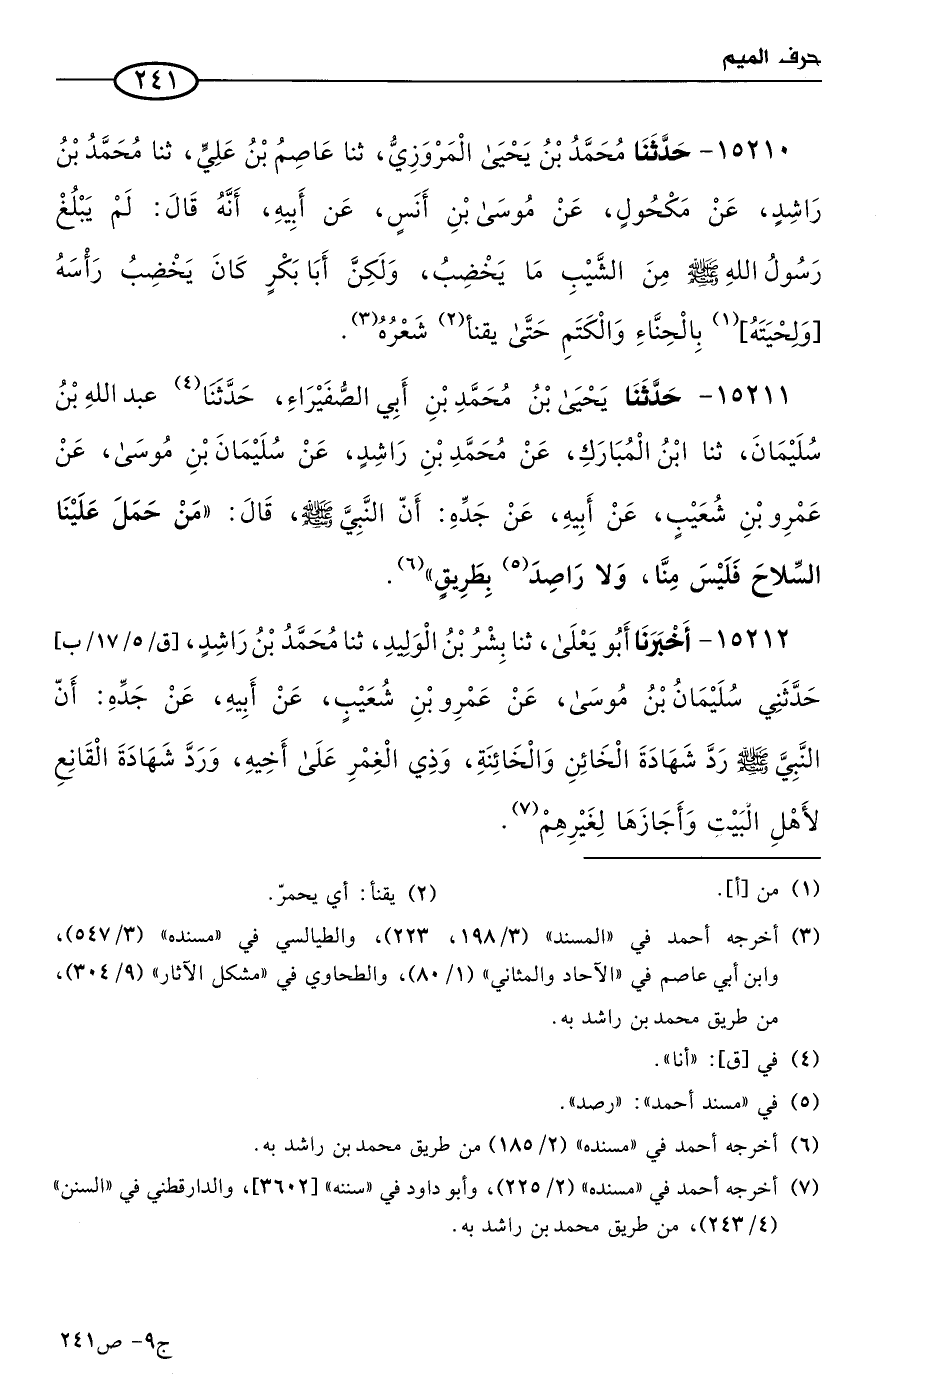 حرف الميم
٢٤١
١٥٢١٠- حَدَّثَنَا مُحَمَّدُ بْنُ يَحْيَىٰ الْمَرْوَزِيُّ، ثنا عَاصِمُ بْنُ عَلِيٍّ، ثنا مُحَمَّدُ بْنُ
رَاشِدٍ، عَنْ مَكْحُولٍ، عَنْ مُوسَىٰ بْنِ أَنَسٍ، عَن أَبِيهِ، أَنَّهُ قَالَ: لَمْ يَبْلُغْ
رَسُولُ اللهِ ﷺ مِنَ الشَّيْبِ مَا يَخْضِبُ، وَلَكِنَّ أَبَا بَكْرٍ كَانَ يَخْضِبُ رَأْسَهُ
[وَلِحْيَتَهُ](١) بِالْحِنَّاءِ وَالْكَتَمِ حَتَّىٰ يقنأ(٢) شَعْرُهُ(٣).
١٥٢١١- حَدَّثَنَا يَحْيَىٰ بْنُ مُحَمَّدِ بْنِ أَبِي الصُّفَيْرَاءِ، حَدَّثَنَا(٤) عبد اللهِ بْنُ
سُلَيْمَانَ، ثنا ابْنُ الْمُبَارَكِ، عَنْ مُحَمَّدِ بْنِ رَاشِدٍ، عَنْ سُلَيْمَانَ بْنِ مُوسَىٰ، عَنْ
عَمْرِو بْنِ شُعَيْبٍ، عَنْ أَبِيهِ، عَنْ جَدِّهِ: أَنّ النَّبِيَّ ﷺ، قَالَ: «مَنْ حَمَلَ عَلَيْنَا
السِّلاحَ فَلَيْسَ مِنَّا، وَلا رَاصِدَ(٥) بِطَرِيقٍ»(٦).
١٥٢١٢- أَخْبَرَنَا أَبُو يَعْلَىٰ، ثنا بِشْرُ بْنُ الْوَلِيدِ، ثنا مُحَمَّدُ بْنُ رَاشِدٍ، [ق/٥/١٧/ب]
حَدَّثَنِي سُلَيْمَانُ بْنُ مُوسَىٰ، عَنْ عَمْرِو بْنِ شُعَيْبٍ، عَنْ أَبِيهِ، عَنْ جَدِّهِ: أَنّ
النَّبِيَّ ﷺ رَدَّ شَهَادَةَ الْخَائِنِ وَالْخَائِنَةِ، وَذِي الْغِمْرِ عَلَىٰ أَخِيهِ، وَرَدَّ شَهَادَةَ الْقَانِعِ
لأَهْلِ الْبَيْتِ وَأَجَازَهَا لِغَيْرِهِمْ(٧).
(١) من [أ]. (٢) يقنأ: أي يحمرّ.
(٣) أخرجه أحمد في «المسند» (٣/ ١٩٨، ٢٢٣)، والطيالسي في «مسنده» (٣/ ٥٤٧)،
وابن أبي عاصم في «الآحاد والمثاني» (١/ ٨٠)، والطحاوي في «مشكل الآثار» (٩/ ٣٠٤)،
من طريق محمد بن راشد به.
(٤) في [ق]: «أنا».
(٥) في «مسند أحمد»: «رصد».
(٦) أخرجه أحمد في «مسنده» (٢/ ١٨٥) من طريق محمد بن راشد به.
(٧) أخرجه أحمد في «مسنده» (٢/ ٢٢٥)، وأبو داود في «سننه» [٣٦٠٢]، والدارقطني في «السنن»
(٤/ ٢٤٣)، من طريق محمد بن راشد به.
ج٩- ص٢٤١